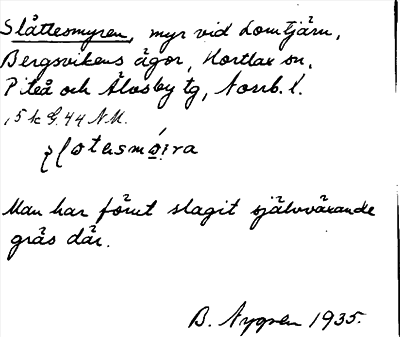 Slåttesmyren, myr vid Lomtjärn,
Bergsvikens ägor, Hortlax sn,
Piteå och Älvsby tg, Norrb. l.
15 k G. 44 N.M.
Man har förut slagit självväxande
gräs där.
B. Nygren 1935.